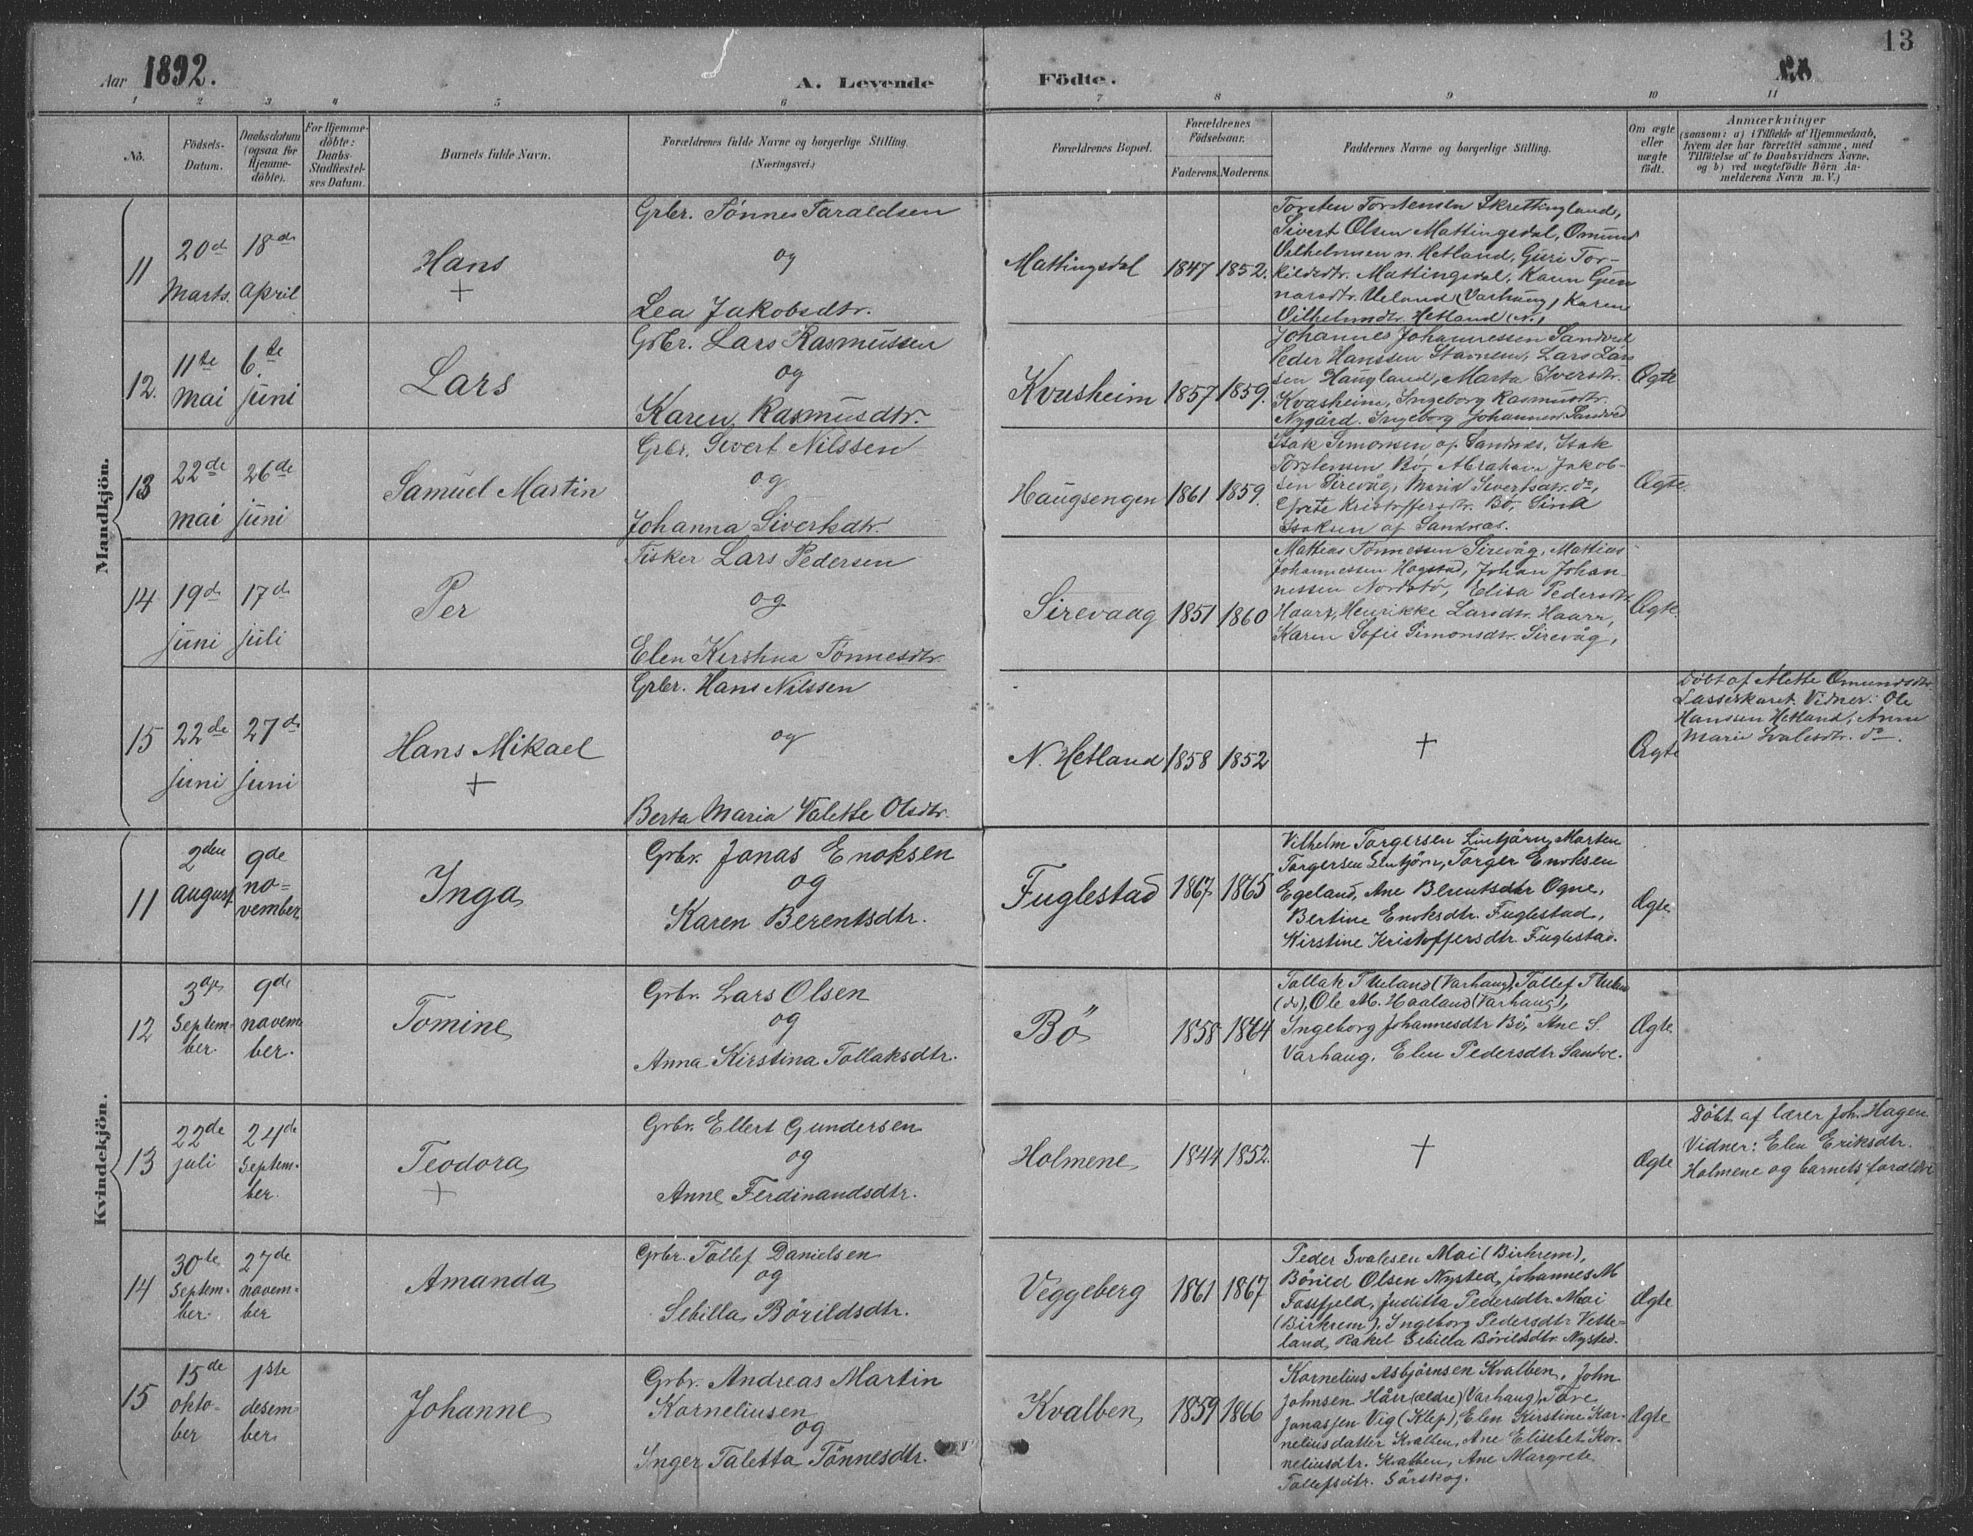 13
Aar 1892. A. Levende Födte.
1 2 3 4 5 6 7 8 9 10 11
No.
Födsels-
Datum.
Daabsdatum
(ogsaa för
Hjemme-
döbte).
For Hjemme-
döbte:
Daabs-
Stadfæstel-
ses Datum.
Barnets fulde Navn.
Forældrenes fulde Navne og borgerlige Stilling.
(Næringsvei.)
Forældrenes Bopæl.
Forældrenes
Födselsaar.
Faderens. Moderens.
Faddernes Navne og borgerlige Stilling.
Om ægte
eller
uægte
födt.
Anmærkninger
(saasom: a) i Tilfælde af Hjemmedaab,
hvem der har forrettet samme, med
Tilföielse af to Daabsvidners Navne,
og b) ved uægtefödte Börn An-
melderens Navn m. V.)
Mandkjön.
11
20de
Marts.
18de
april
Hans
+
Grbr. Tönnes Taraldsen
og
Lea Jakobsdtr.
Mattingsdal
1847 1852.
Torsten Torstensen Skrettingland,
Sivert Olsen Mattingsdal, Omund
Vilhelmsen n. Hetland, Guri Tor-
kildsdtr. Mattingsdal, Karen Gun
narsdtr. Ueland (Varhaug), Karen
Vilhelmsdtr. Hetland (N.)
12.
11te
mai
6te
juni
Lars
Grbr. Lars Rasmussen
og
Karen Rasmusdtr.
Kvasheim
1857 1859.
Johannes Johannessen Sandved
Peder Hanssen Stavnem, Lars Lars
sen Haugland, Marta Iversdtr.
Kvasheim, Ingeborg Rasmusdtr.
Nygård. Ingeborg Johannesd. Sandved
Ægte
13
22de
mai
26de
juni
Samuel Martin
Grbr. Sivert Nilssen
og
Johanna Sivertsdtr.
Haugsengen
1861 1859.
Isak Simonsen af Sandnæs, Isak
Torstensen Bö, Abraham Jakob-
sen Sirevåg, Maria Sivertsdtr. do,
Grete Kristoffersdtr. Bö, Sina
Isaksen af Sandnæs.
Ægte.
14
19de
juni
17de
juli
Per
Fisker Lars Pedersen
og
Elen Kirstina Tönnesdtr.
Sirevaag
1851 1860
Mattias Tönnessen Sirevåg, Mattias
Johannessen Hogstad, Johan Johan-
nessen Nordstö, Elisa Pedersdtr.
Haarr, Henrikke Larsdtr. Haarr,
Karen Sofie Simonsdtr. Sirevåg,
Ægte.
15
22de
juni
27de
juni
Hans Mikael
+
Grbr. Hans Nilssen
og
Berta Maria Valette Olsdtr.
N. Hetland
1858 1852
+
Ægte
Döbt af Mette Omundsdtr.
Vidner: Ole
Hanssen Hetland, Anne
Marie Svalesdtr. do.
Kvindekjön.
11
2den
august
9de
no-
vember
Inga
Grbr. Jonas Enoksen
og
Karen Berentsdtr.
Fuglestad
1867 1865
Vilhelm Torgersen Lintjörn, Morten
Torgersen Lintjörn, Torger Enoksen
Egeland, Ane Berentsdtr Ogne,
Bertine Enoksdtr. Fuglestad,
Kirstine Kristoffersdtr. Fuglestad.
Ægte
12
3dje
Septem-
ber.
9de
novem
ber.
Tomine
Grbr. Lars Olsen
og
Anna Kirstina Tollaksdtr.
Bö
1858 1864
Tollak T Ueland (Varhaug), Tollef T Ueland
(do), Ole M. Haaland (Varhaug),
Ingeborg Johannesdtr Bö, Ane S.
Varhaug, Elen Pedersdtr Sandve.
Ægte
13
22de
juli
24de
Septem-
ber.
Teodora
+
Grbr. Ellert Gundersen
og
Anne Ferdinandsdtr.
Holmene
1844 1852.
+
Ægte
Döbt af lærer Joh. Hagen
Vidner: Elen Eriksdtr.
Holmene og barnets forældre
14
30te
Septem-
ber.
27de
novem-
ber
Amanda
Grbr. Tollef Danielsen
og
Sebilla Börildsdtr.
Veggeberg
1861 1867
Peder Svalesen Mai (Birkrem),
Börild Olsen Nysted, Johannes M
Fossfjeld, Juditta Pedersdtr. Mai
(Birkrem), Ingeborg Pedersdtr Vette-
land, Rakel Sebilla Börildsdtr. Nysted.
Ægte
15
15de
okto-
ber
1ste
desem-
ber.
Johanne
Grbr. Andreas Martin
Korneliusen
og
Inger Taletta Tönnesdtr.
Kvalben
1859 1866
Kornelius Asbjörnsen Kvalben, John
Johnsen Hårr (ældre) (Varhaug), Tore
Jonassen Vig (Klep), Elen Kirstine Kor-
neliusdatter Kvalben, Ane Elisabet Kor-
neliusdtr. Kvalben, Ane Margrete
Tollefsdtr. Sörskog.
Ægte